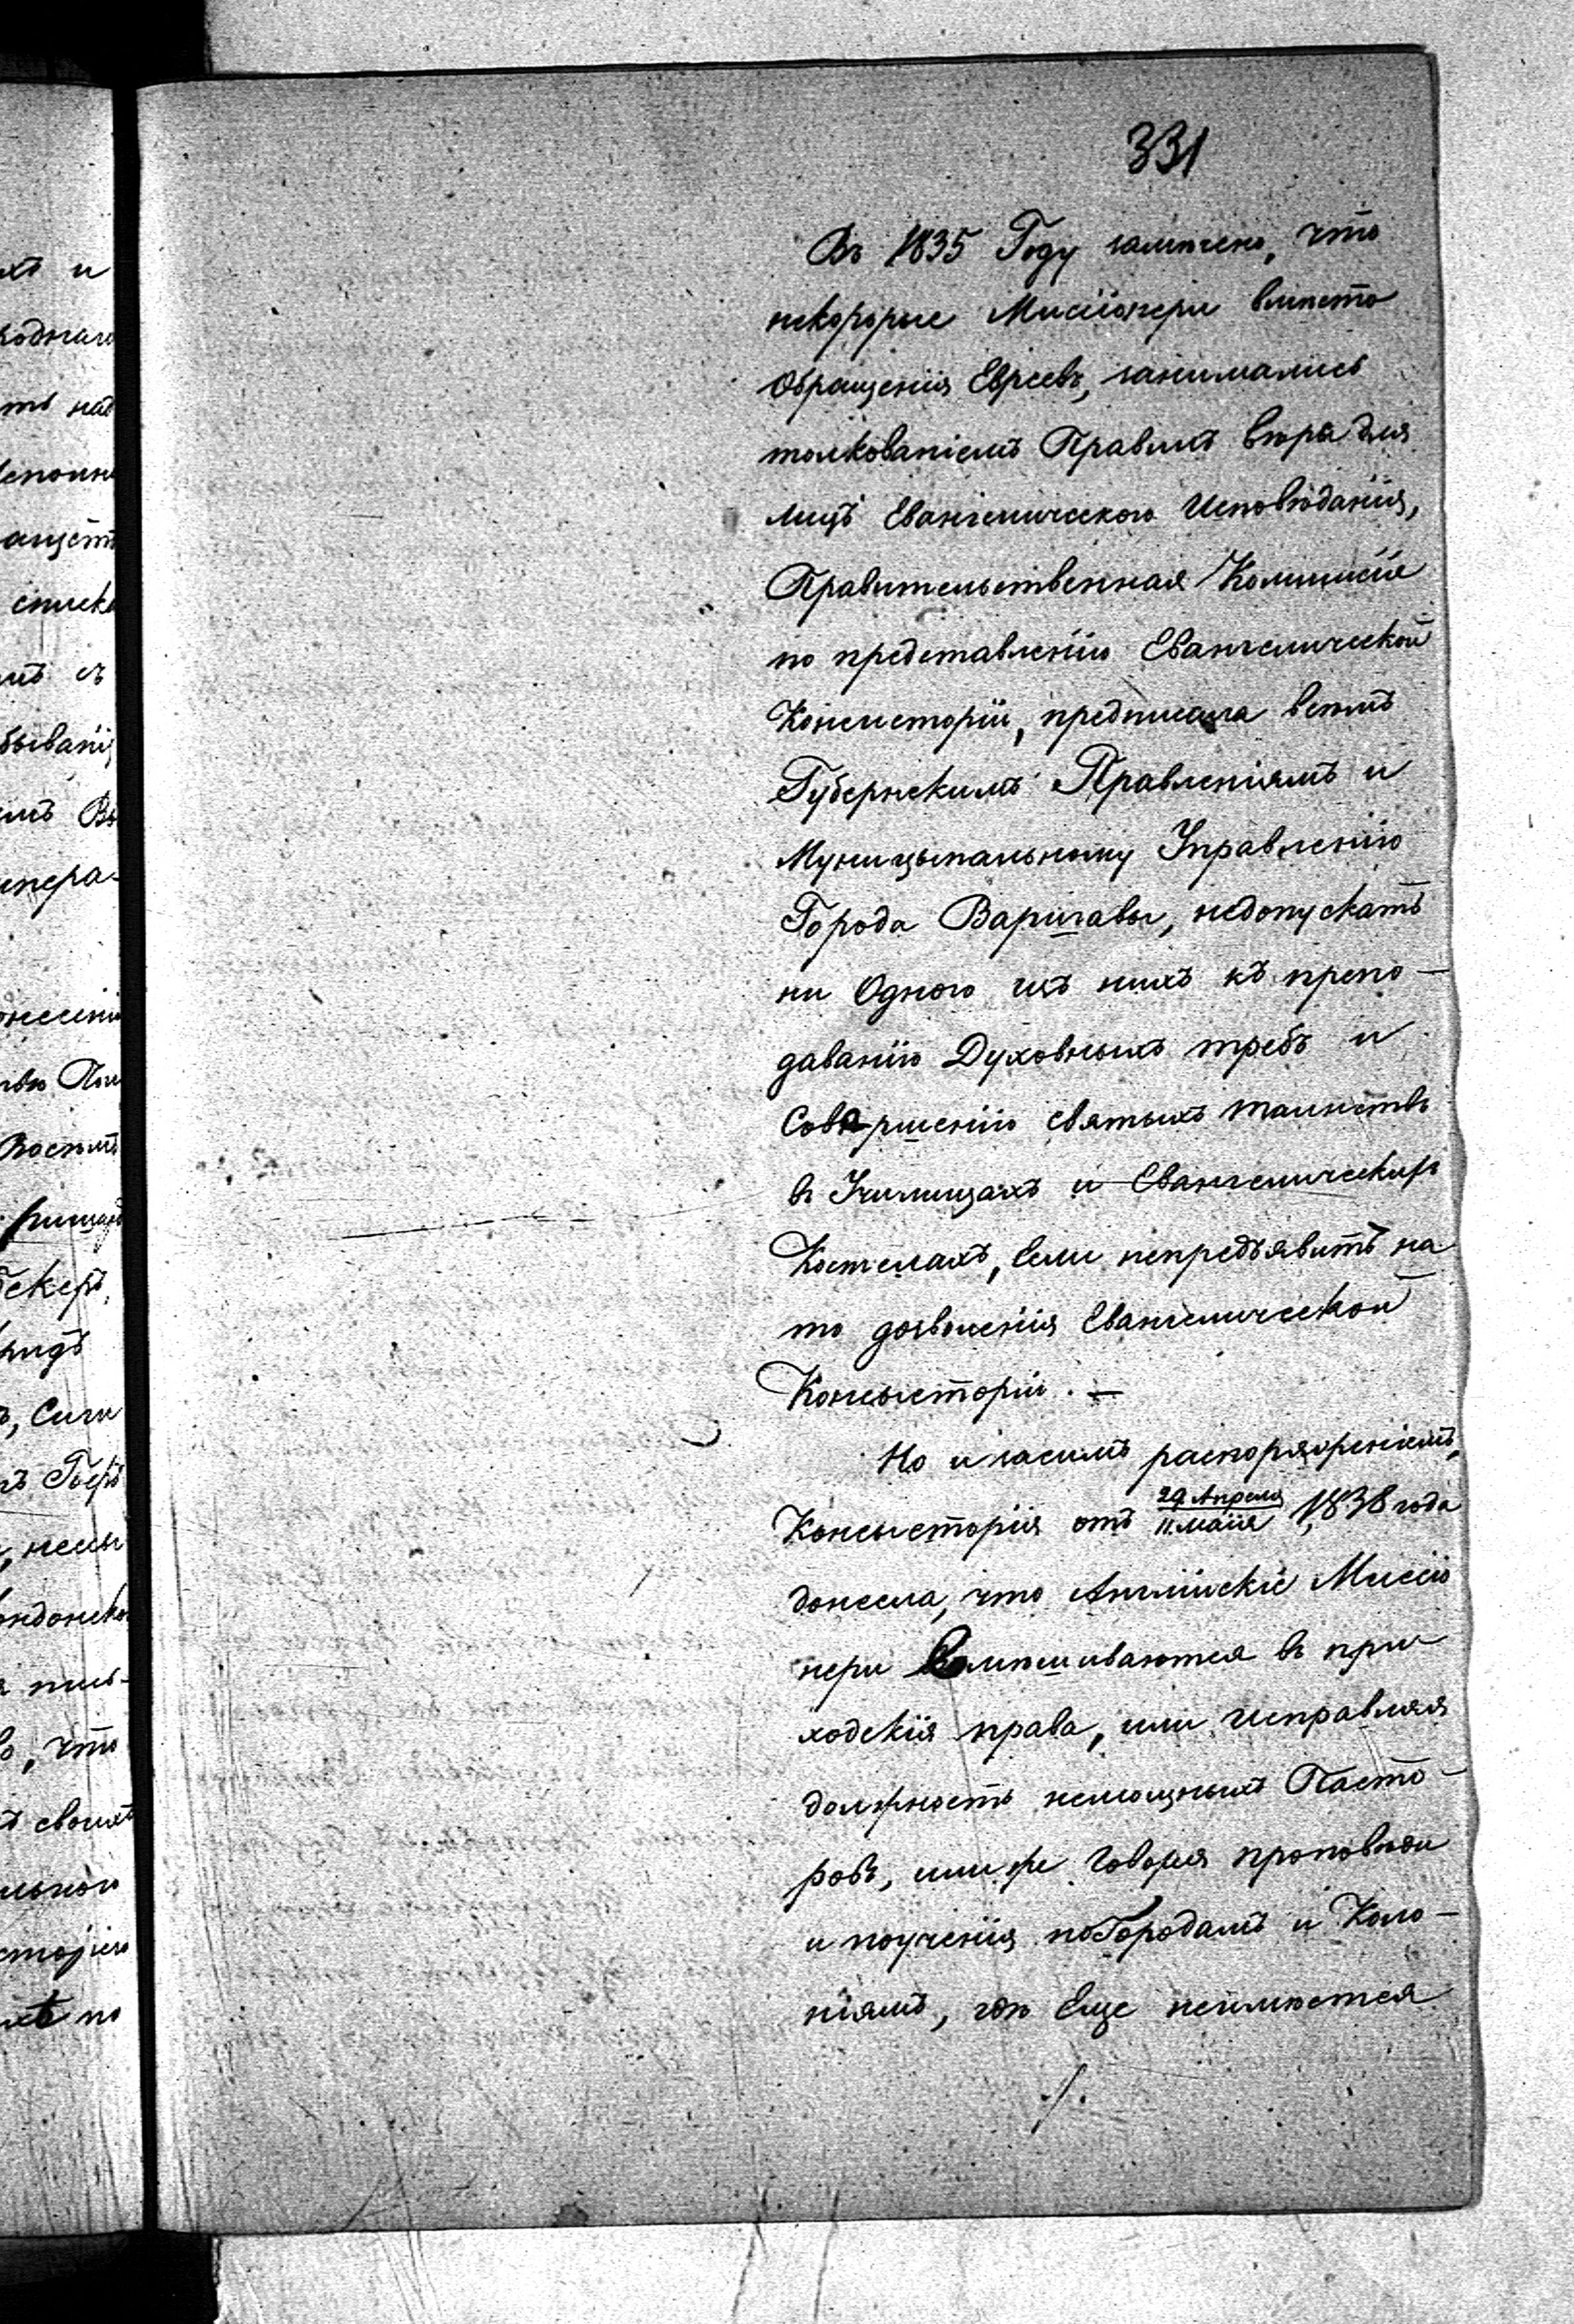 331
Въ 1835 Году замѣчено, что
некоторые Мисіонери вмѣсто
Обращенія Евреевъ, занимались
толкованіемъ Правилъ вѣры для
лицъ Евангелического Исповѣданія,
Правительственная Коммисія
по представленію Евангелической
Консисторіи, предписала всѣмъ
Губернскимъ Правленіямъ и
Муницыпальному Управленію
Города Варшавы, недопускать
ни Одного изъ нихъ къ препо-
даванію Духовныхъ требъ и
Совершенію святыхъ таинствъ
въ Училищахъ и Евангелическихъ
Костелахъ, Если непредъявитъ на
то дозволенія Евангелической
Консысторіи. —
Но и засимъ распоряженіемъ,
Консысторія отъ 29 Апреля / 11 маія 1838 года
донесла, что Англійскіе Миссіо
нери вмѣшиваются въ при
ходскія права, или исправляя
должность немощныхъ Пасто-
ровъ, или же говоря проповѣди
и поученія по Городамъ и Коло-
ніямъ, гдѣ Еще неимѣется
./.
хъ и
роднаго
ть над
бываніи
имъ Вы
пера-
Восемь
ридъ
, Сиги
ондонска
о, что
ъ своихъ
хъ по